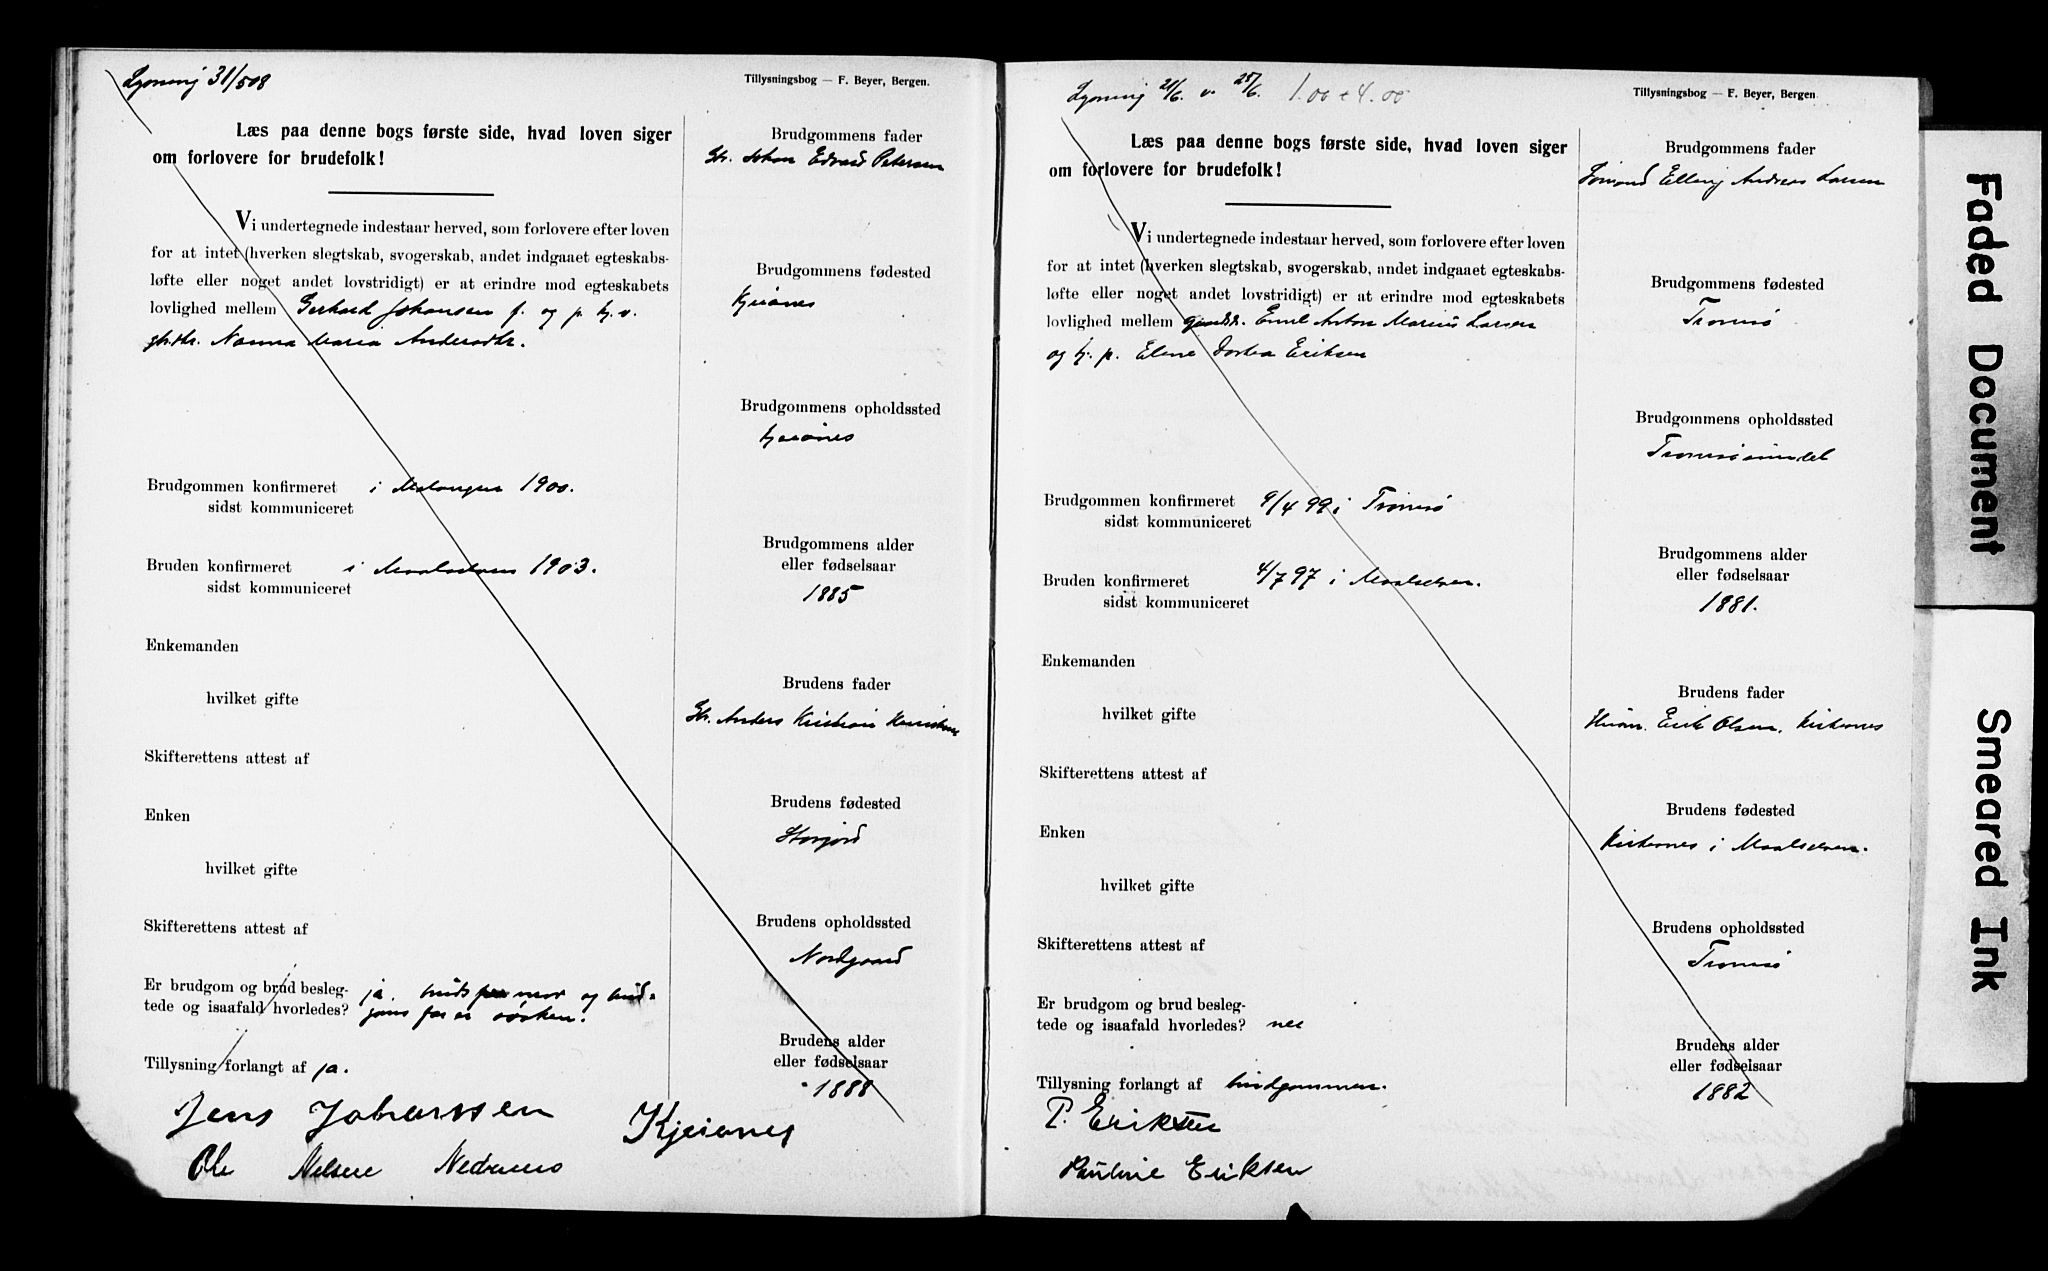 Lysning 31/5 08
Tillysningsbog — F. Beyer, Bergen.
Læs paa denne bogs første side, hvad loven siger
om forlovere for brudefolk!
Vi undertegnede indestaar herved, som forlovere efter loven
for at intet (hverken slegtskab, svogerskab, andet indgaaet egteskabs-
løfte eller noget andet lovstridigt) er at erindre mod egteskabets
lovlighed mellem Gerhard Johansen f. og p. tj. v.
Nanna Maria Andersdtr.
Brudgommen konfirmeret i Malangen 1900.
sidst kommuniceret
Bruden konfirmeret i Maalselven 1903.
sidst kommuniceret
Enkemanden
hvilket gifte
Skifterettens attest af
Enken
hvilket gifte
Skifterettens attest af
Er brudgom og brud besleg- ja. bruds mor og brud-
tede og isaafald hvorledes? goms far er søsken.
Tillysning forlangt af ja.
Jens Johanssen Kjeiones
Ole Nelsen
Brudgommens fader
Gb. Johan Edvard Petersen
Brudgommens fødested
Kjeiones
Brudgommens opholdssted
Kjeiones
Brudgommens alder
eller fødselsaar
1885
Brudens fader
Gb. Anders Kristian
Brudens fødested
Storfjord
Brudens opholdssted
Nordgaard
Brudens alder
eller fødselsaar
1888
Lysning 21/6. v. 28/6. 1.00 + 4.00
Tillysningsbog — F. Beyer, Bergen
Læs paa denne bogs første side, hvad loven siger
om forlovere for brudefolk!
Vi undertegnede indestaar herved, som forlovere efter loven
for at intet (hverken slegtskab, svogerskab, andet indgaaet egteskabs-
løfte eller noget andet lovstridigt) er at erindre mod egteskabets
lovlighed mellem Emil Anton Marius Larsen
og tj. p. Eline Dortea Eriksen
Brudgommen konfirmeret 9/4 99 i Tromsø
sidst kommuniceret
Bruden konfirmeret 4/7 97 i Maalselven.
sidst kommuniceret
Enkemanden
hvilket gifte
Skifterettens attest af
Enken
hvilket gifte
Skifterettens attest af
Er brudgom og brud besleg-
tede og isaafald hvorledes? nei
Tillysning forlangt af brudgommen.
P. Eriksen
Pauline Eriksen
Brudgommens fader
Formand Elling Andreas Larsen
Brudgommens fødested
Tromsø
Brudgommens opholdssted
Tromsøsundet
Brudgommens alder
eller fødselsaar
1881.
Brudens fader
Erik Olsen, Kirkesnes
Brudens fødested
Kirkesnes i Maalselven.
Brudens opholdssted
Tromsø
Brudens alder
eller fødselsaar
1882
Faded Document
Smeared Ink